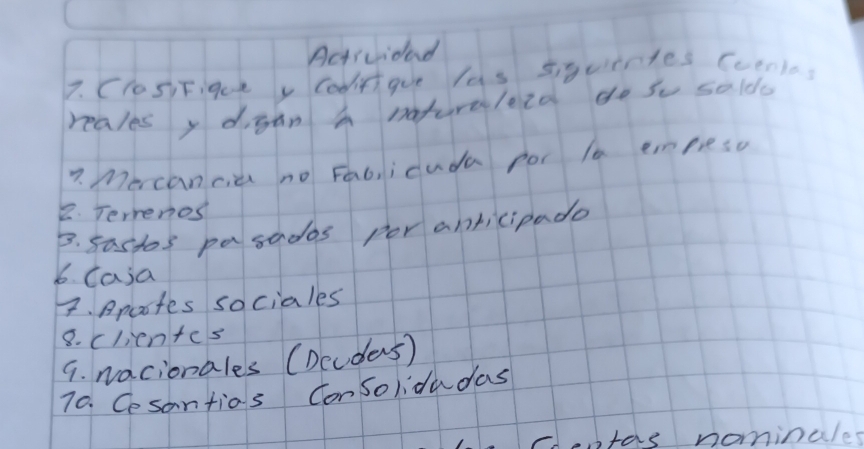 Actividad
1. Clasifique y codifique las siguientes Cuentas
reales y digan la naturaleza de su saldo
1. Mercancia no Fabricada por la empresa
2. Terrenos
3. Gastos pagados por anticipado
6. Caja
7. Aportes sociales
8. Clientes
9. Nacionales (Deudas)
10. Cesantias Consolidadas
Cuentas nominales